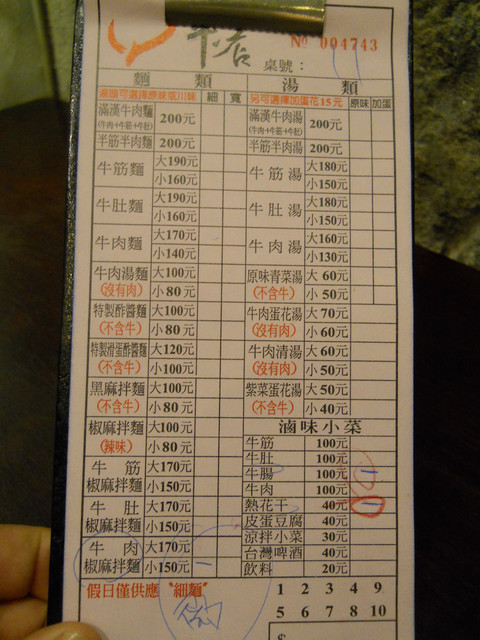 牛店
№ 004743
桌號：
麵類
湯頭可選擇原味或川味 細 寬
滿漢牛肉麵 200元
(牛肉+牛筋+牛肚)
半筋半肉麵 200元
牛筋麵 大190元
小160元
牛肚麵 大190元
小160元
牛肉麵 大170元
小140元
牛肉湯麵 大100元
(沒有肉) 小 80元
特製酢醬麵 大100元
(不含牛) 小 80元
特製滑蛋酢醬麵 大120元
(不含牛) 小100元
黑麻拌麵 大100元
(不含牛) 小 80元
椒麻拌麵 大100元
(辣味) 小 80元
牛筋 大170元
椒麻拌麵 小150元
牛肚 大170元
椒麻拌麵 小150元
牛肉 大170元
椒麻拌麵 小150元
一
微
假日僅供應〝細麵〞
湯類
另可選擇加蛋花15元 原味 加蛋
滿漢牛肉湯 200元
(牛肉+牛筋+牛肚)
半筋半肉湯 200元
牛筋湯 大180元
小150元
牛肚湯 大180元
小150元
牛肉湯 大160元
小130元
原味青菜湯 大 60元
(不含牛) 小 50元
牛肉蛋花湯 大 70元
(沒有肉) 小 60元
牛肉清湯 大 60元
(沒有肉) 小 50元
紫菜蛋花湯 大 50元
(不含牛) 小 40元
滷味小菜
牛筋 100元
牛肚 100元
牛腸 100元
牛肉 100元
熱花干 40元
皮蛋豆腐 40元
涼拌小菜 30元
台灣啤酒 40元
飲料 20元
1 2 3 4 9
5 6 7 8 10
$